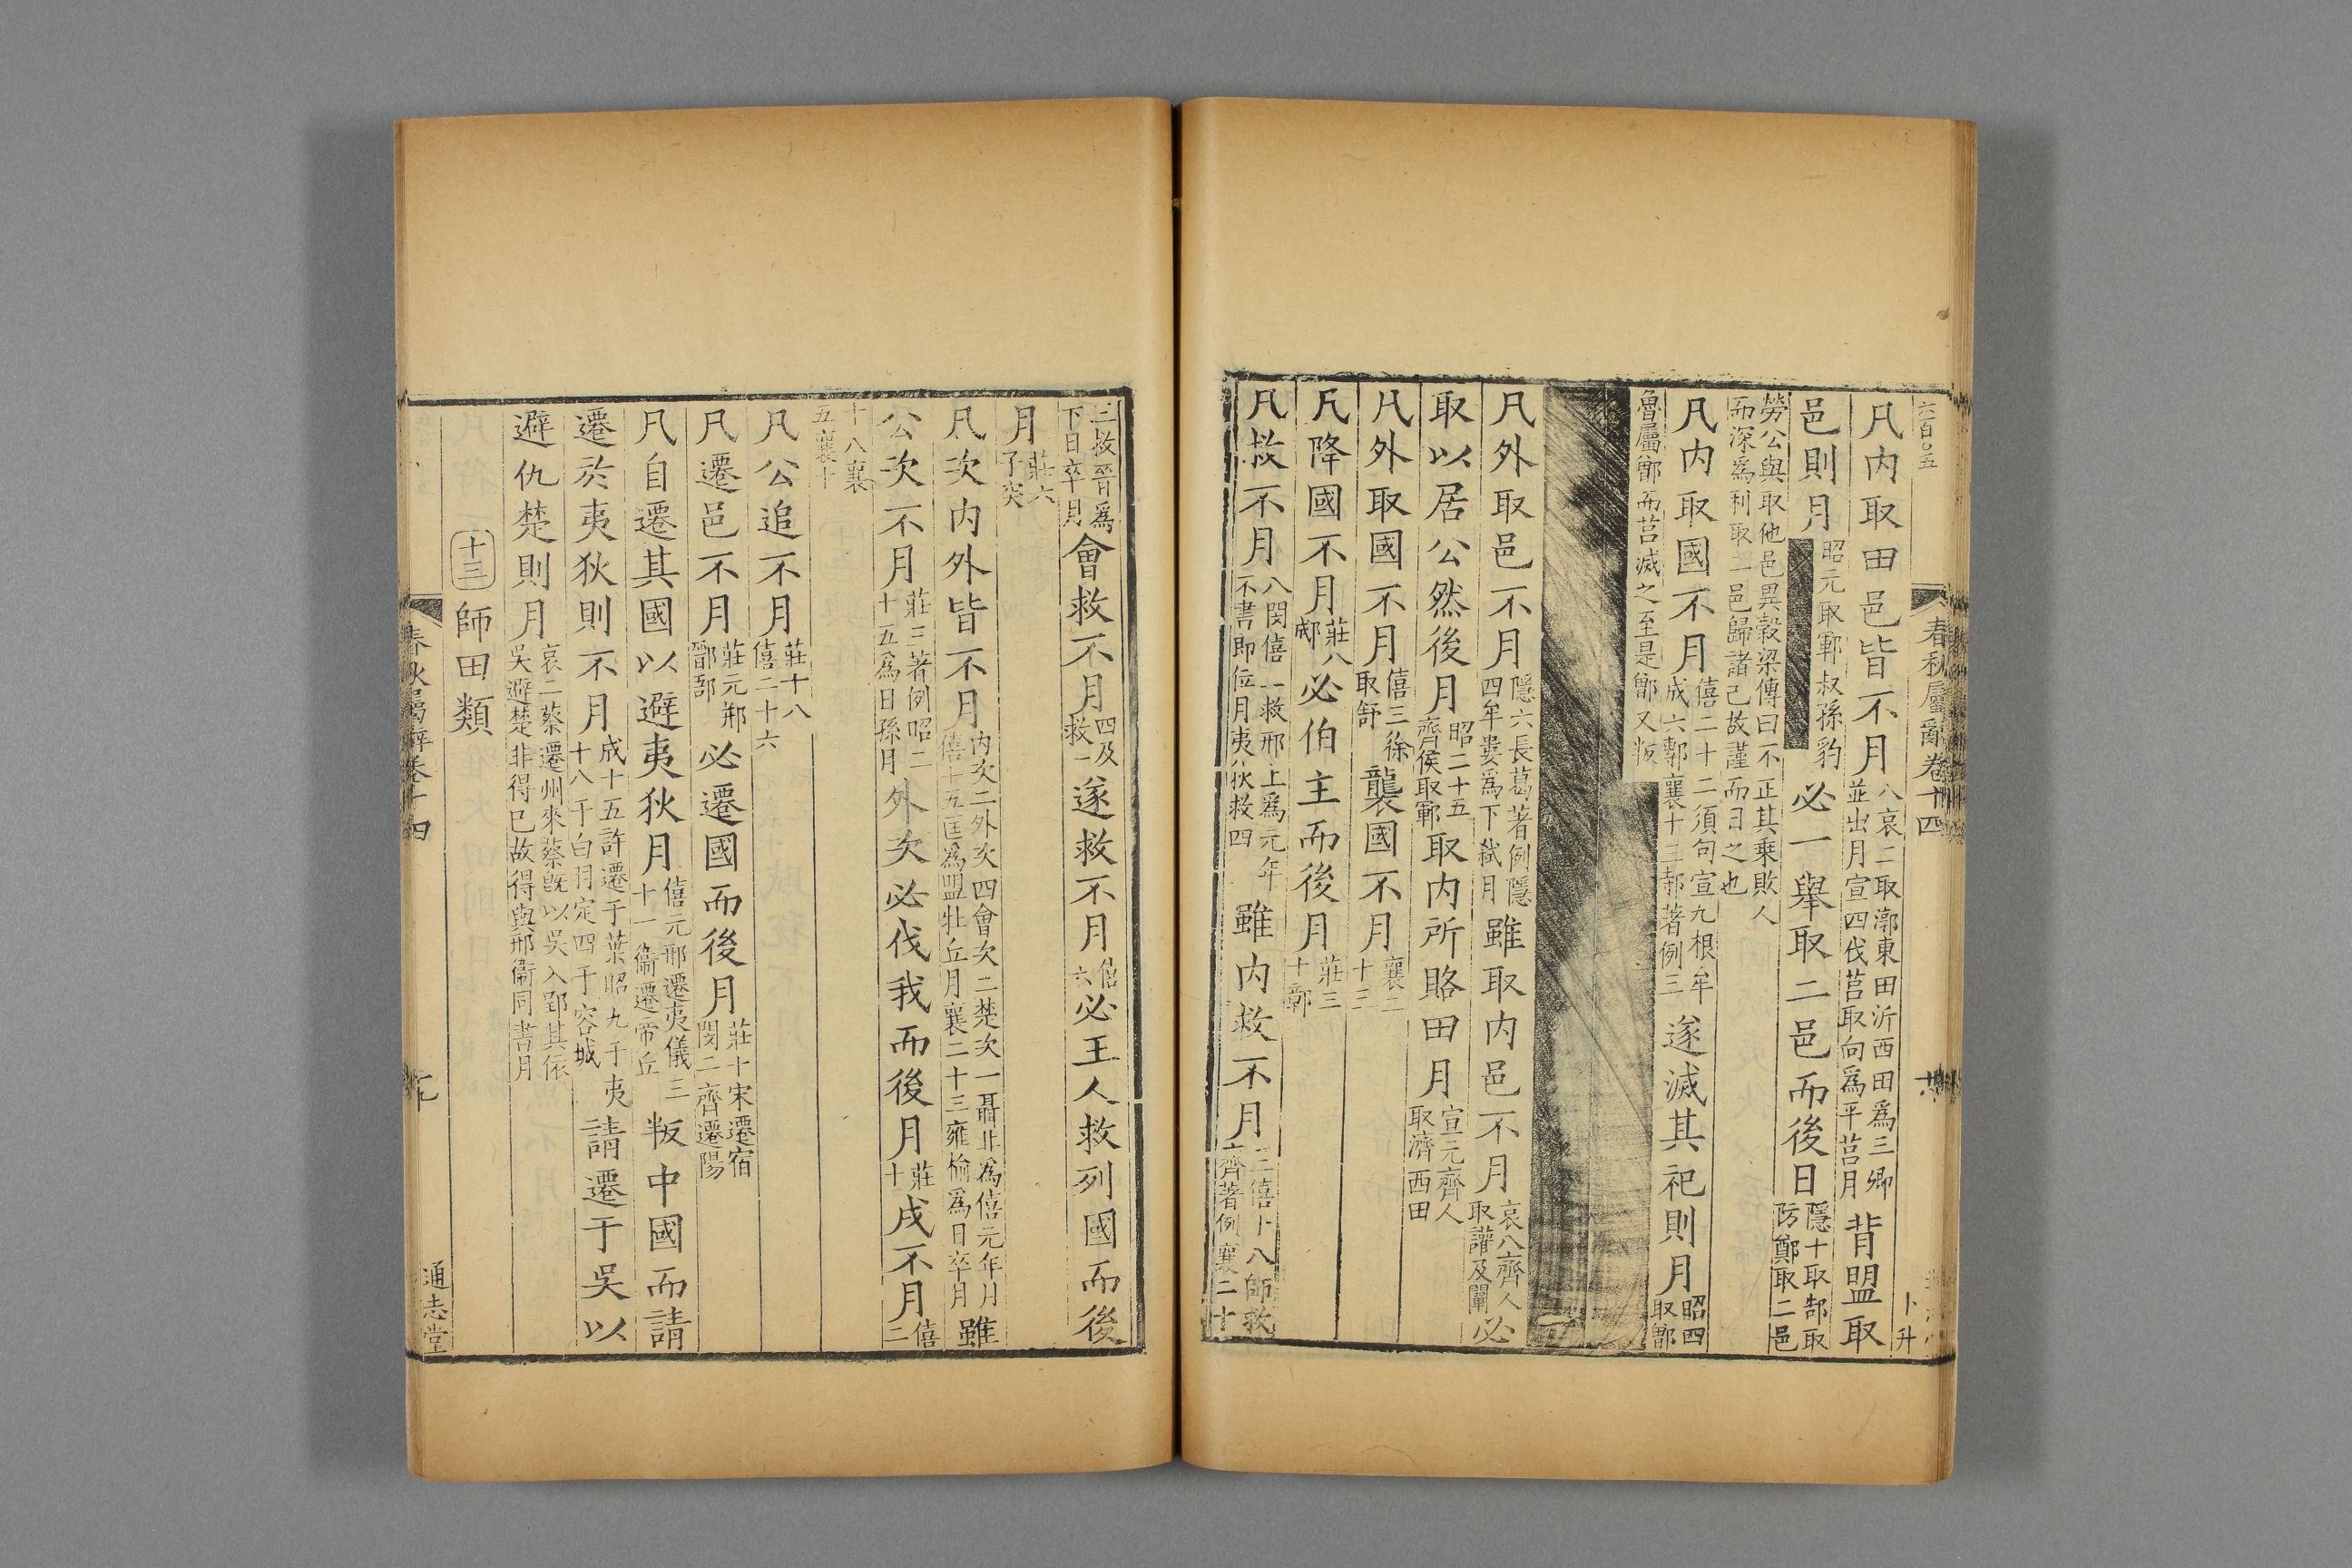 六百〇五
春秋屬辭卷十四
卜升
凡内取田邑皆不月八哀二取漷東田沂西田爲三卿並出月宣四伐莒取向爲平莒月背盟取
邑則月昭元取鄆叔孫豹必一舉取二邑而後日隱十取郜取防鄭取二邑
勞公與取他邑異穀梁傳曰不正其乘敗人而深爲利取二邑歸諸己故謹而日之也
凡内取國不月僖二十二須句宣九根牟成六鄟襄十三邿著例三遂滅其祀則月昭四取鄫
魯屬鄫而莒滅之至是鄫又叛
凡外取邑不月隱六長葛著例隱四牟婁爲下弒月雖取内邑不月哀八齊人取讙及闡必
取以居公然後月昭二十五齊侯取鄆取内所賂田月宣元齊人取濟西田
凡外取國不月僖三徐取舒襲國不月襄二十三
凡降國不月莊八郕必伯主而後月莊三十鄣
凡救不月八閔僖一救邢上爲元年不書即位月夷狄救四雖内救不月二僖十八師救齊著例襄二十
三救晉爲下日卒月會救不月四及救一遂救不月僖六必王人救列國而後
月莊六子突
凡次内外皆不月内次二外次四會次二楚次一聶北爲僖元年月僖十五匡爲盟牡丘月襄二十三雍榆爲日卒月雖
公次不月莊三著例昭二十五爲日孫月外次必伐我而後月莊十戍不月僖二
十八襄五襄十
凡公追不月莊十八僖二十六
凡遷邑不月莊元郱鄑郚必遷國而後月莊十宋遷宿閔二齊遷陽
凡自遷其國以避夷狄月僖元邢遷夷儀三十一衞遷帝丘叛中國而請
遷於夷狄則不月成十五許遷于葉昭九于夷十八于白羽定四于容城請遷于吳以
避仇楚則月哀二蔡遷州來蔡旣以吳入郢其依吳避楚非得已故得與邢衞同書月
十三師田類
春秋屬辭卷十四
通志堂